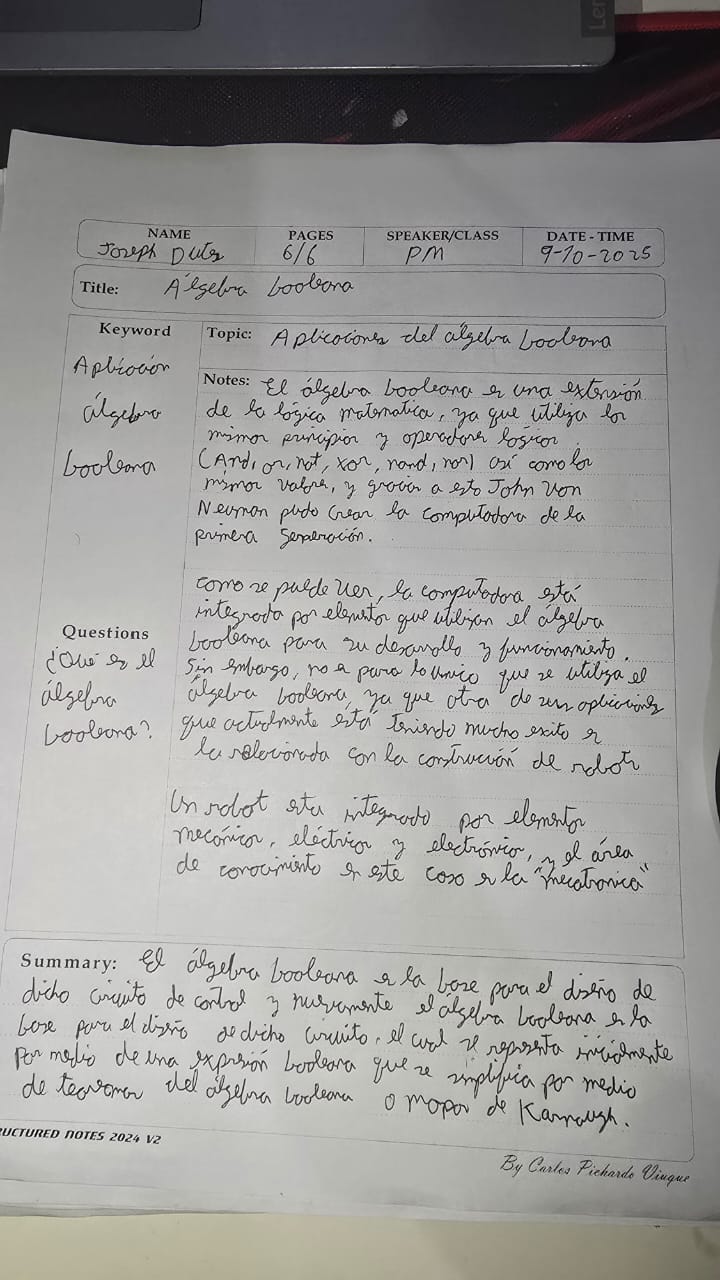 Len
NAME PAGES SPEAKER/CLASS DATE - TIME
Joseph 6/6 PM 9-10-2025
Title: Álgebra booleana
Keyword
Aplicación
álgebra
booleana
Topic: Aplicaciones del álgebra booleana
Notes: El álgebra booleana es una extensión
de la lógica matematica, ya que utiliza los
mismos principios y operadores lógicos
(And, or, not, xor, nand, nor) así como los
mismos valores, y gracias a esto John Von
Neuman pudo crear la computadora de la
primera generación.
como se puede ver, la computadora está
integrada por elementos que utilizan el álgebra
booleana para su desarrollo y funcionamiento.
Sin embargo, no es para lo unico que se utiliza el
álgebra booleana, ya que otra de sus aplicaciones
que actualmente está teniendo mucho exito es
la relacionada con la construcción de robots
Un robot esta integrado por elementos
mecánicos, eléctricos y electrónicos, y el área
de conocimiento en este caso es la "mecatronica"
Questions
¿Qué es el
álgebra
booleana?
Summary: El álgebra booleana es la base para el diseño de
dicho circuito de control y nuevamente el álgebra booleana es la
base para el diseño de dicho circuito, el cual se representa inicialmente
por medio de una expresión booleana que se simplifica por medio
de teoremas del álgebra booleana o mapas de Karnaugh.
RUCTURED NOTES 2024 V2
By Carlos Pichardo Viuque